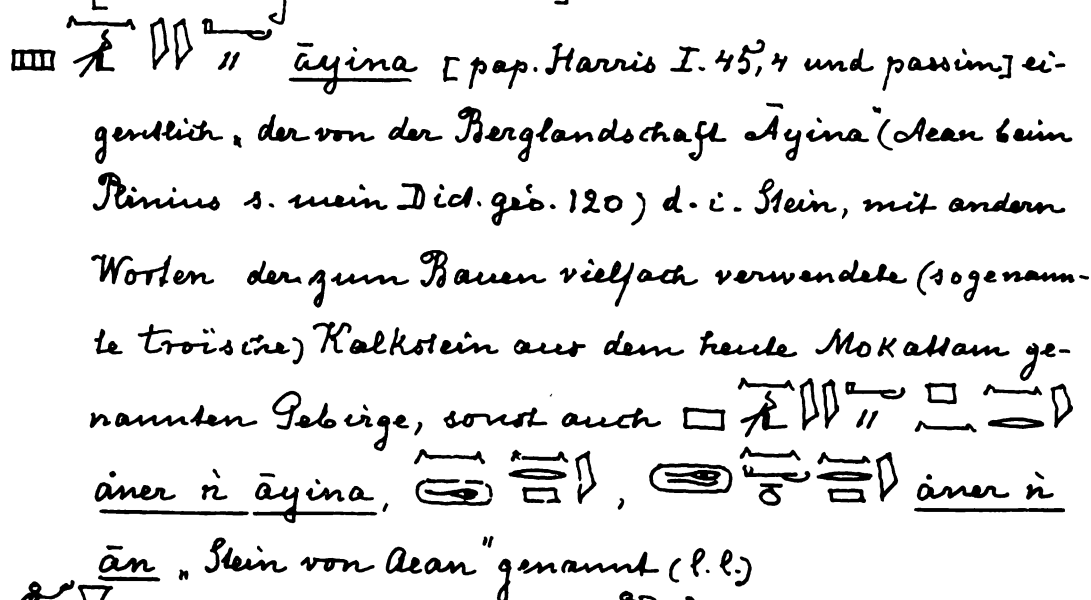 āyina [pap. Harris I. 45,4 und passim] ei-
gentlich „der von der Berglandschaft Āyina" (Aean beim
Plinius s. mein Dict. géo. 120) d. i. Stein, mit andern
Worten der zum Bauen vielfach verwendete (sogenann-
te troïsche) Kalkstein aus dem heute Mokattam ge-
nannten Gebirge, sonst auch
ȧner ǹ āyina, , ȧner ǹ
ān „Stein von Aean" genannt (l. l.)